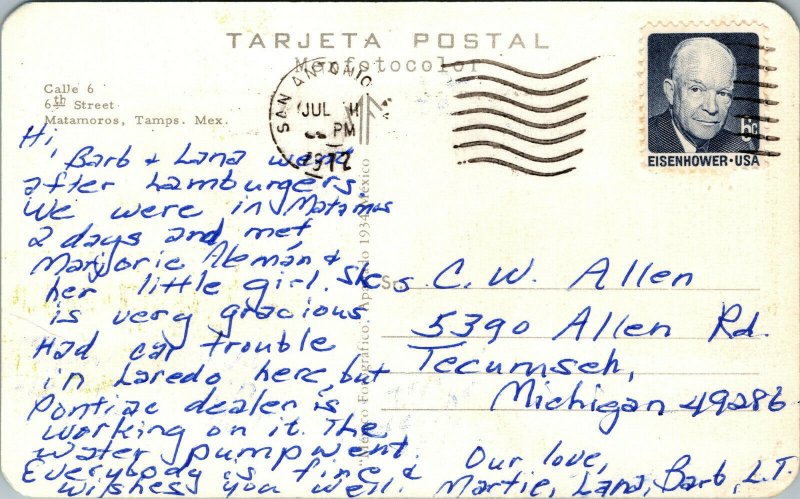 TARJETA POSTAL
Mexfotocolor
Calle 6
6th Street
Matamoros, Tamps. Mex.
SAN ANTONIO
JUL
PM
1972
6c
EISENHOWER · USA
Hi,
Barb & Lana went
after hamburgers.
We were in Matamos
2 days and met
Marjorie Alemán &
her little girl. She
is very gracious
Had car trouble
in Laredo here, but
Pontiac dealer is
working on it. The
water pump went.
Everybody is fine &
wishes you well.
México Fotográfico. Apartado 1934. México
C. W. Allen
5390 Allen Rd.
Tecumseh,
Michigan 49286
Our love,
Martie, Lana, Barb, L.T.